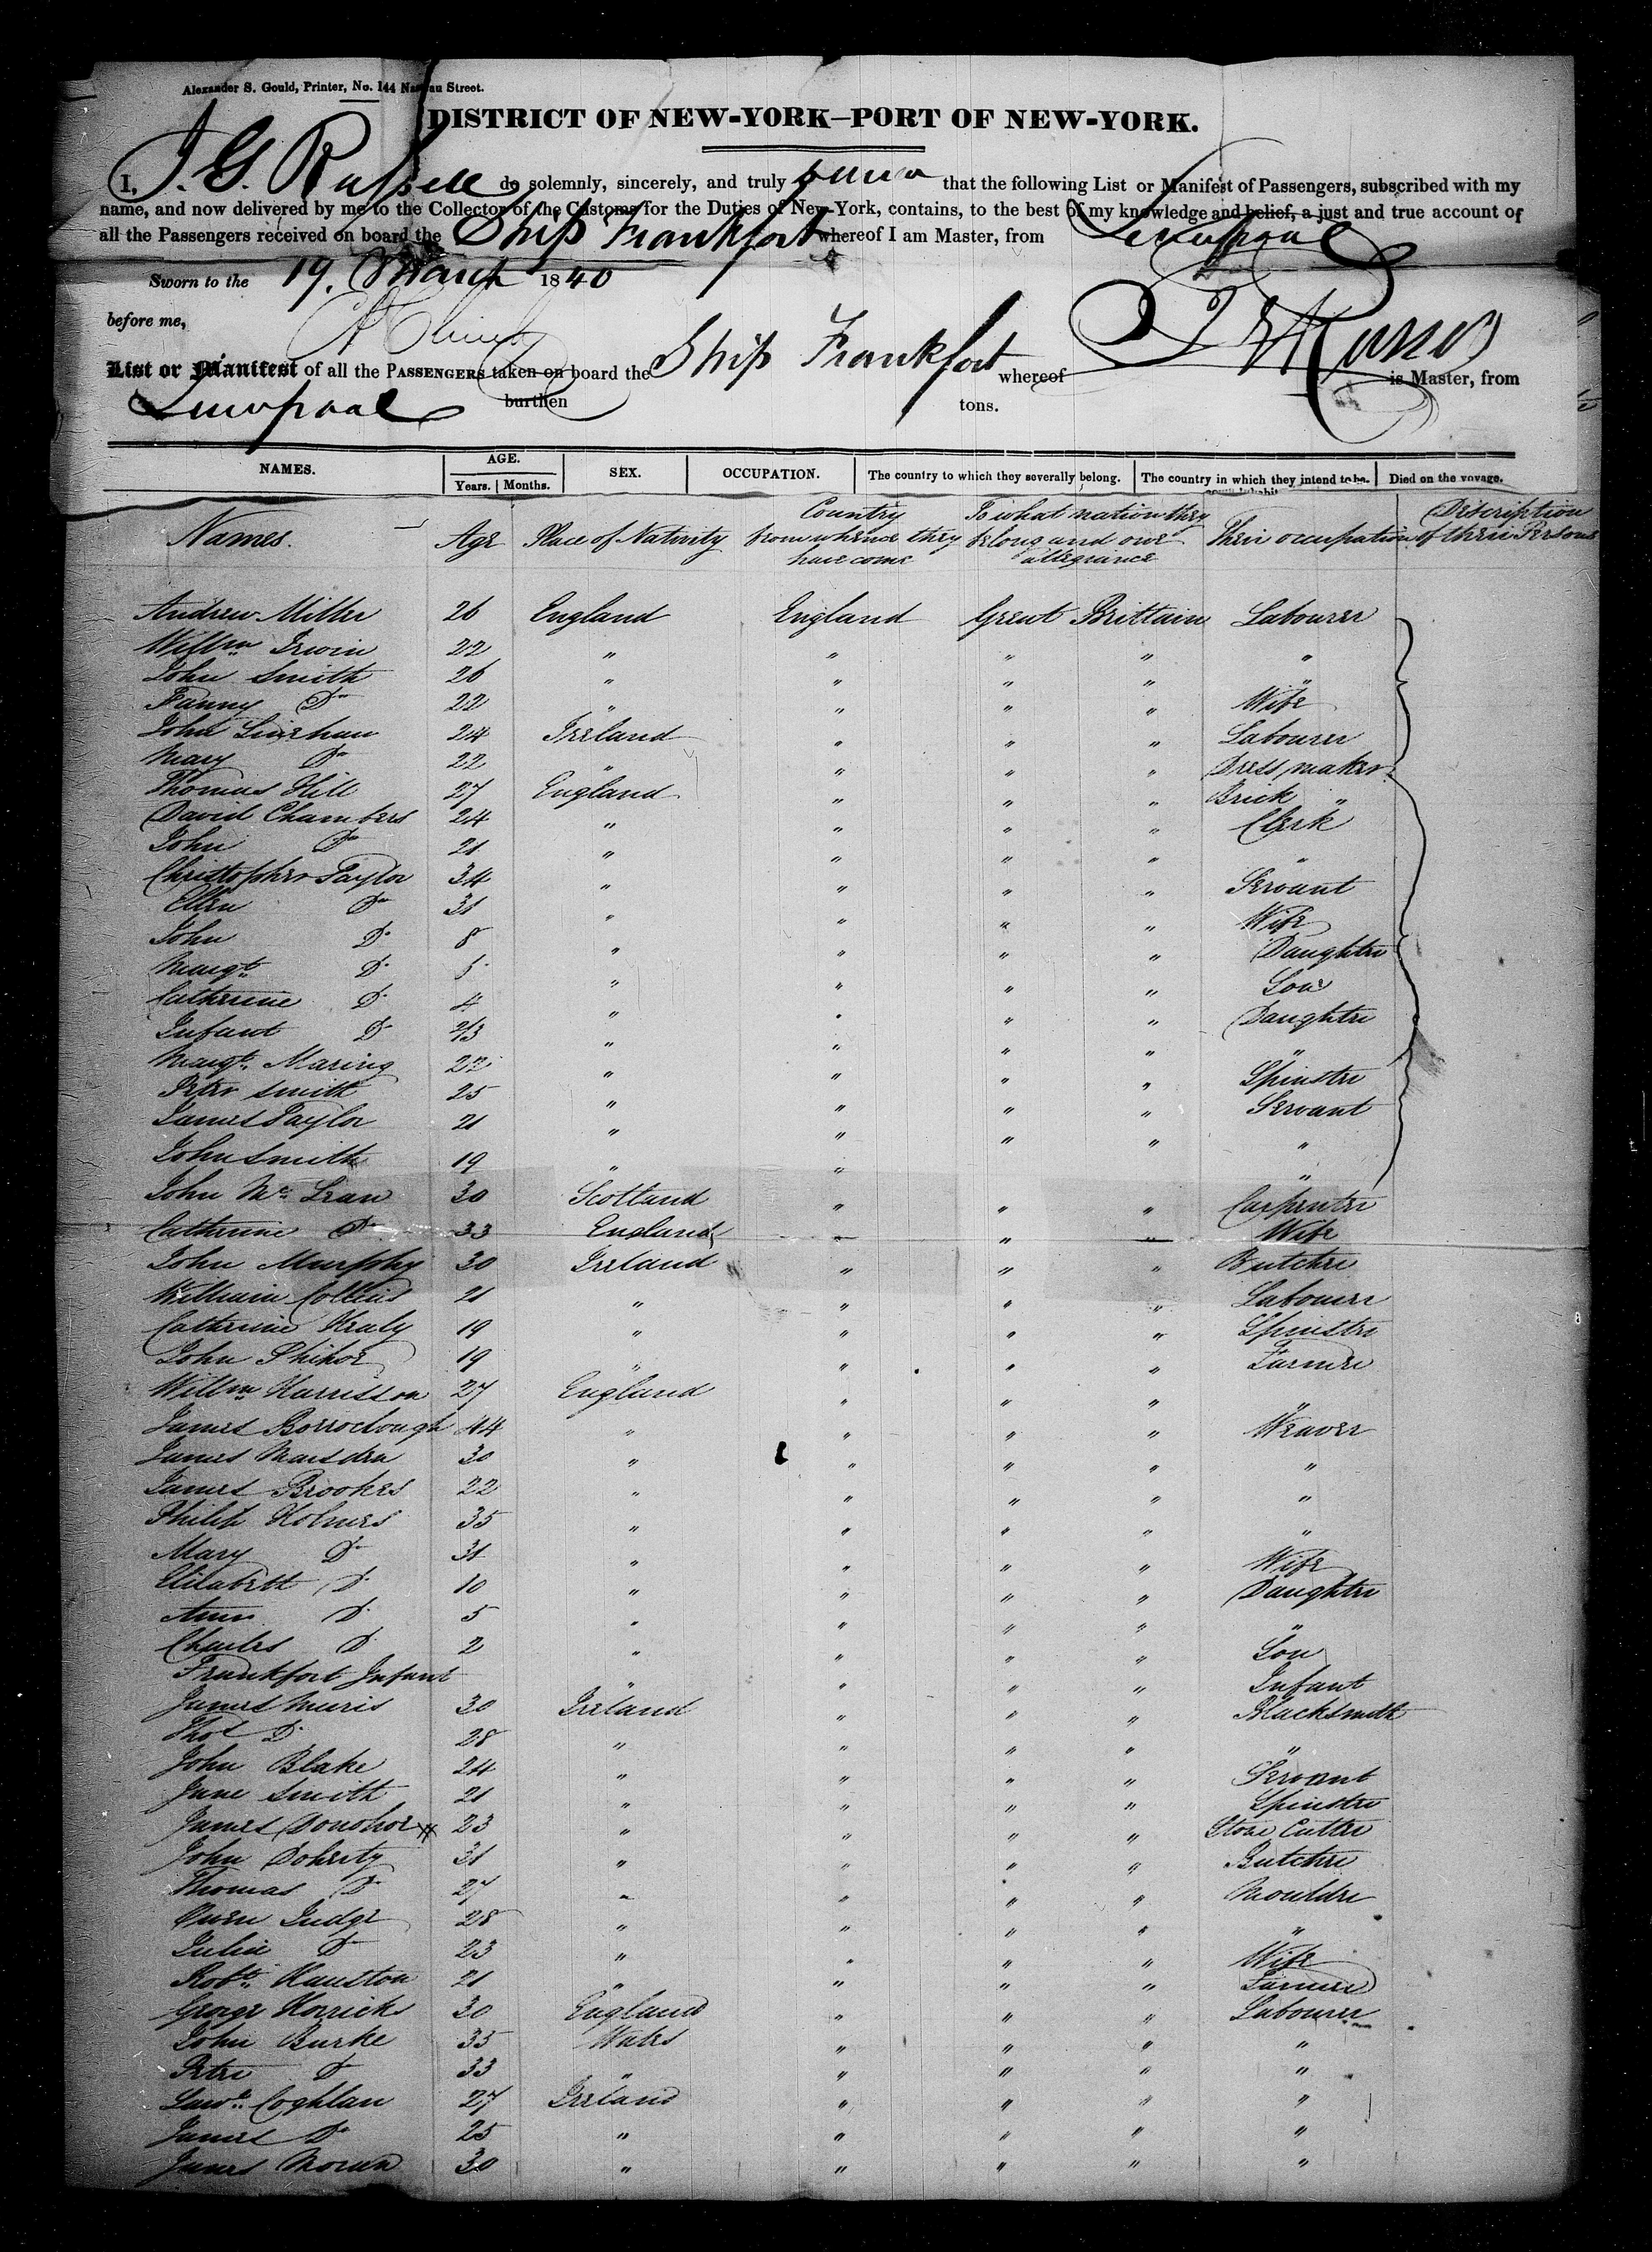 Alexander S. Gould, Printer, No. 144 Nassau Street.
DISTRICT OF NEW-YORK—PORT OF NEW-YORK.
I, J. G. Russell do solemnly, sincerely, and truly swear that the following List or Manifest of Passengers, subscribed with my
name, and now delivered by me to the Collector of the Customs for the Duties of New-York, contains, to the best of my knowledge and belief, a just and true account of
all the Passengers received on board the Ship Frankfort whereof I am Master, from Liverpool
Sworn to the 19. March 1840
before me,
List or Manifest of all the PASSENGERS taken on board the Ship Frankfort whereof J G Russell is Master, from
Liverpool burthen tons.
NAMES. AGE. Years. Months. SEX. OCCUPATION. The country to which they severally belong. The country in which they intend to be- Died on the voyage.
Names. Age Place of Nativity Country from whence they have come To what nation they belong and owe allegiance Their occupation Discription of their Persons
Andrew Miller 26 England England Great Brittain Labourer
Willm Irwin 22 " " " " "
John Smith 26 " " " " "
Fanny Do 22 " " " " Wife
John Linehan 24 Ireland " " " Labourer
Mary Do 22 " " " " Dress maker
Thomas Hill 27 England " " " Brick "
David Chambers 24 " " " " Clerk
John Do 21 " " " " "
Christopher Taylor 34 " " " " Servant
Ellen Do 31 " " " " Wife
John Do 8 " " " " Daughter
Margt Do 5 " " " " Son
Catherine Do 4 " " " " Daughter
Infant Do " " " " "
Margt Maring 22 " " " " Spinster
Peter Smith 25 " " " " Servant
James Taylor 21 " " " " "
John Smith 19 " " " " "
John Mc Lean 30 Scotland " " " Carpenter
Catherine Do 33 England " " " Wife
John Murphy 30 Ireland " " " Butcher
William Collins 21 " " " " Labourer
Catherine Healy 19 " " " " Spinster
John 19 " " " " Farmer
Willm Harrisson 27 England " " " "
James Borroclough 44 " " " " Weaver
James Marsden 30 " " " " "
James Brookes 22 " " " " "
Philip Holmes 35 " " " " "
Mary Do 31 " " " " Wife
Elizabeth Do 10 " " " " Daughter
Ann Do 5 " " " " "
Charles Do 2 " " " " Son
Frankfort Infant " " " " Infant
James Meris 30 Ireland " " " Blacksmith
Thos Do 28 " " " " "
John Blake 24 " " " " Servant
Jane Smith 21 " " " " Spinster
James Donohoe 23 " " " " Stone Cutter
John Doherty 31 " " " " Butcher
Thomas Do 27 " " " " Moulder
Owen Judge 28 " " " " "
Julia Do 23 " " " " Wife
Robt Hauston 21 " " " " Farmer
George Horricks 30 England " " " Labourer
John Burke 35 Wales " " " "
Peter Do 33 " " " " "
Lawe Coghlan 27 Ireland " " " "
James Do 25 " " " " "
James Moran 30 " " " " "